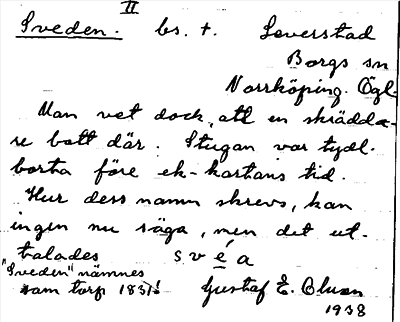 II
Sveden. bs. t. Leverstad
Borgs sn
Norrköping. Ögl.
Man vet dock, att en skrädda-
re bott där. Stugan var tydl.
borta före ek-kartans tid.
Hur dess namn skrevs, kan
ingen nu säga, men det ut-
talades svéa
"Sveden" nämnes
som torp 1831!
Gustaf E. Olsson
1938